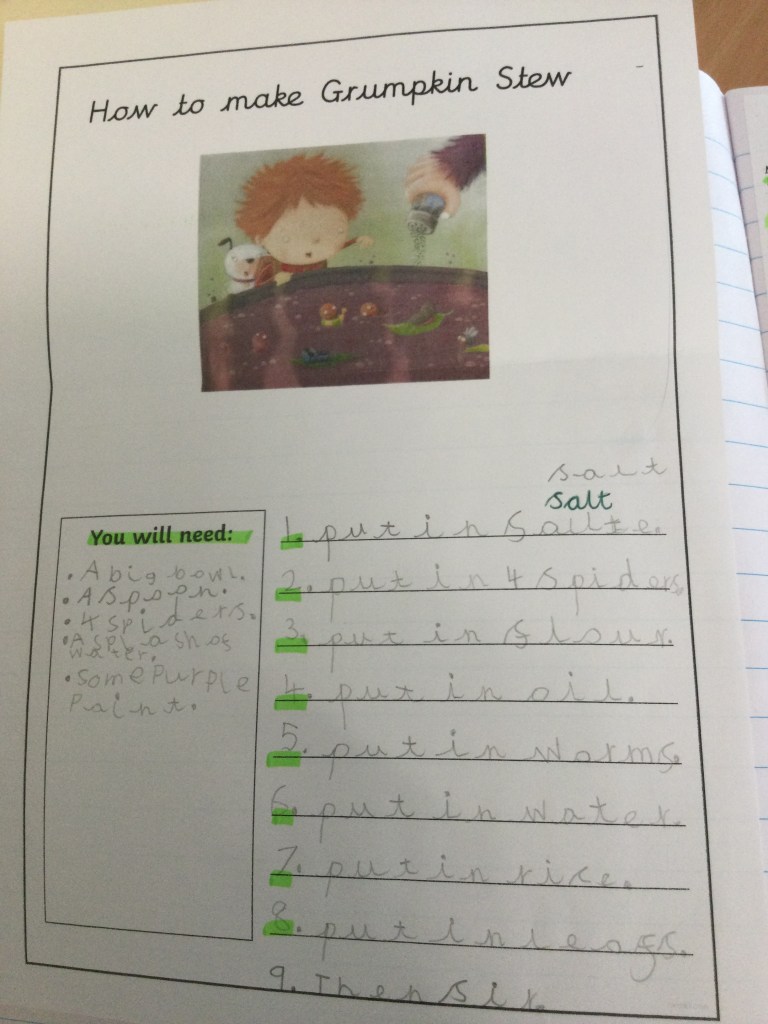 How to make Grumpkin Stew
You will need:
• A big bowl.
• A spoon.
• 4 spiders.
• A splash of
water.
• Some Purple
Paint.
salt
salt
1. put in Sallte.
2. put in 4 spiders.
3. put in flour.
4. put in oil.
5. put in worms.
6. put in water.
7. put in rice.
8. put in leafs.
9. Then sir.